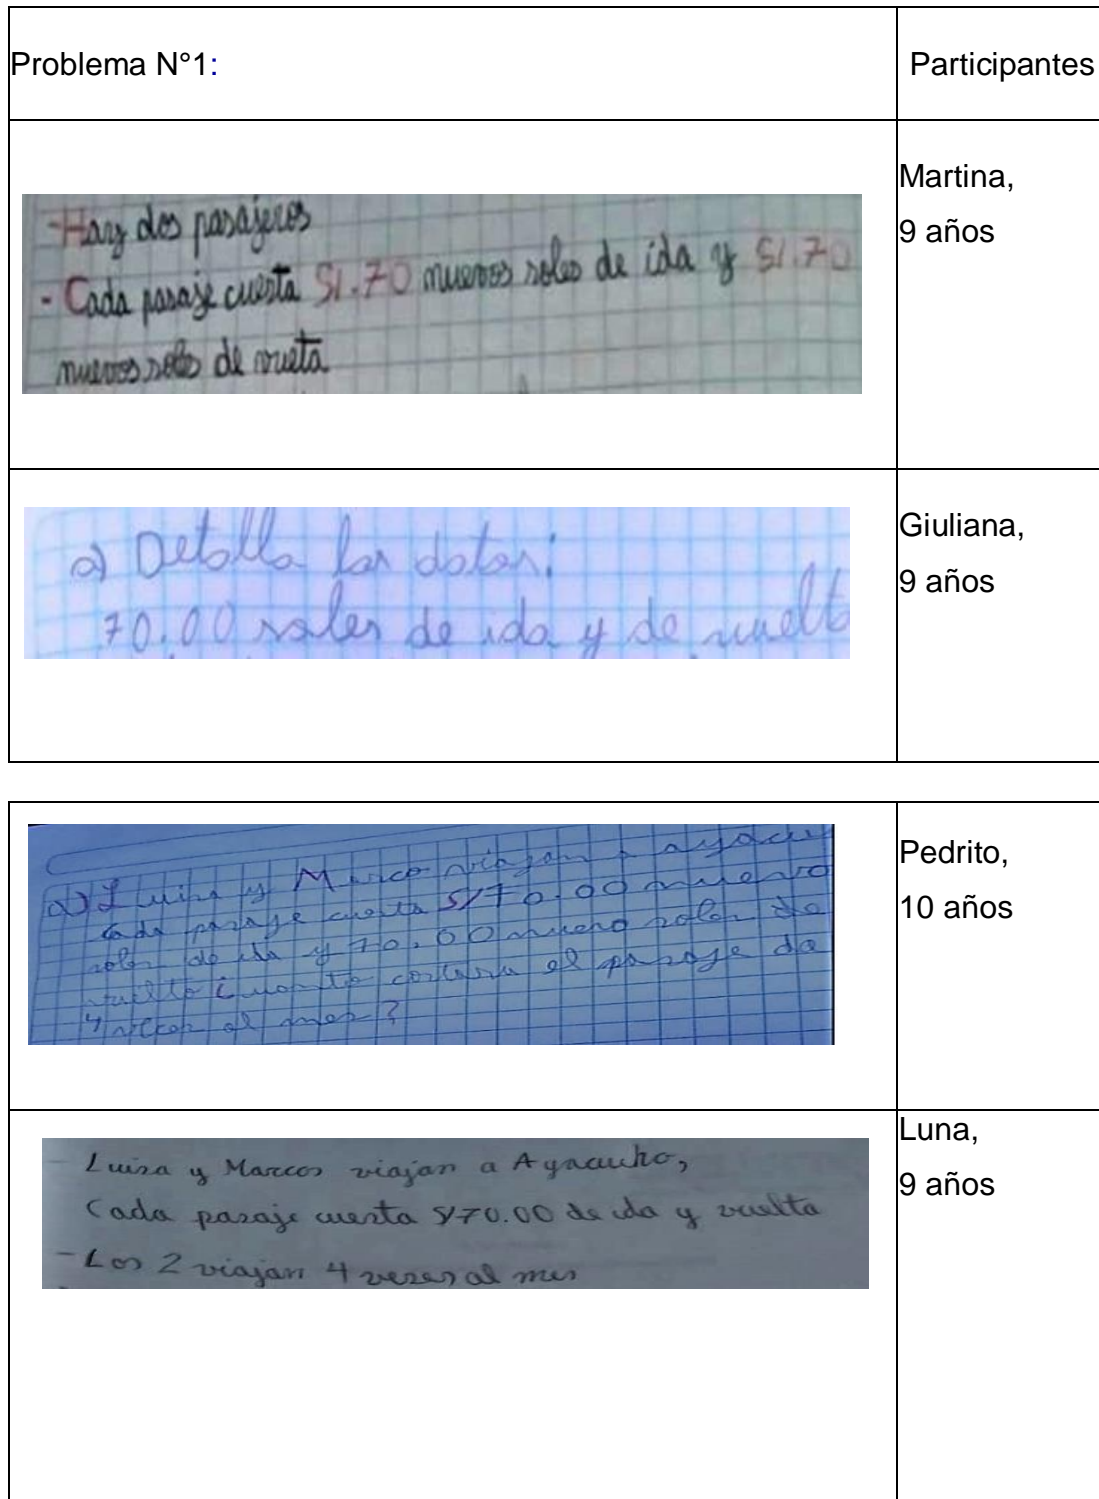 Problema N°1:
Participantes
- Hay dos pasajeros
- Cada pasaje cuesta S/.70 nuevos soles de ida y S/.70
nuevos soles de vueta
Martina,
9 años
a) Detalla los datos:
70.00 soles de ida y de vuelt
Giuliana,
9 años
a) Luisa y Marco viajan a ayacu
cada pasaje cuesta S/70.00 nuevo
soles de ida y 70.00 nuevo soles de
vuelto ¿cuanto costara el pasaje de
4 veces al mes?
Pedrito,
10 años
- Luisa y Marcos viajan a Ayacucho,
Cada pasaje cuesta S/70.00 de ida y vuelta
- Los 2 viajan 4 veses al mes
Luna,
9 años